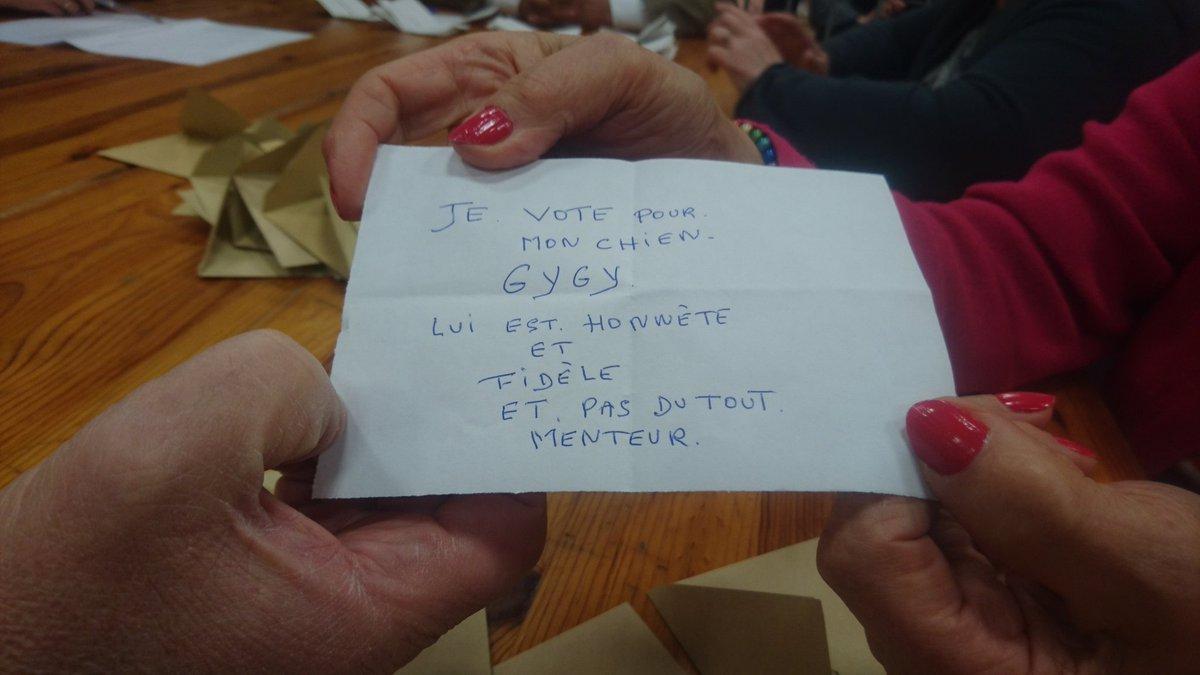 JE. VOTE POUR.
MON CHIEN.
GYGY.
LUI EST. HONNÈTE
ET
FIDÈLE
ET. PAS DU TOUT.
MENTEUR.